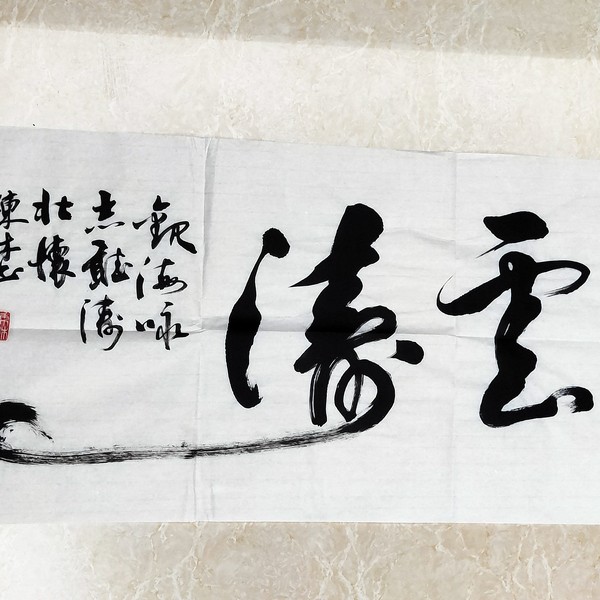 雲濤
觀海咏
志聽濤
壯懷
陳